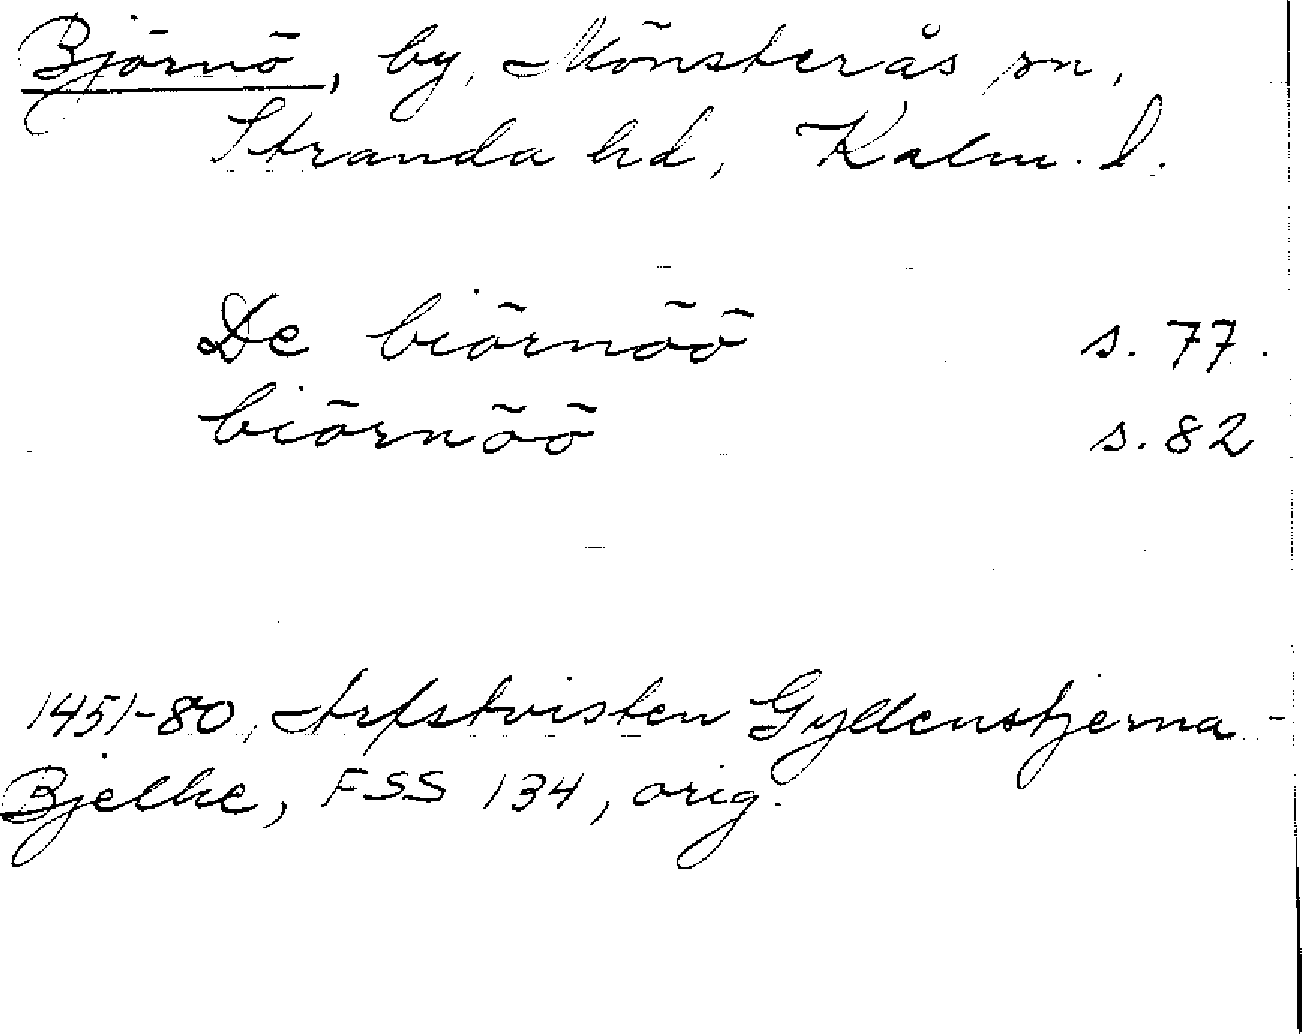 Björnö, by, Mönsterås sn,
Stranda hd, Kalm. l.
De biörnöö s. 77.
biörnöö s. 82
1451-80, Arfstvisten Gyllenstjerna-
Bjelke, FSS 134, orig.